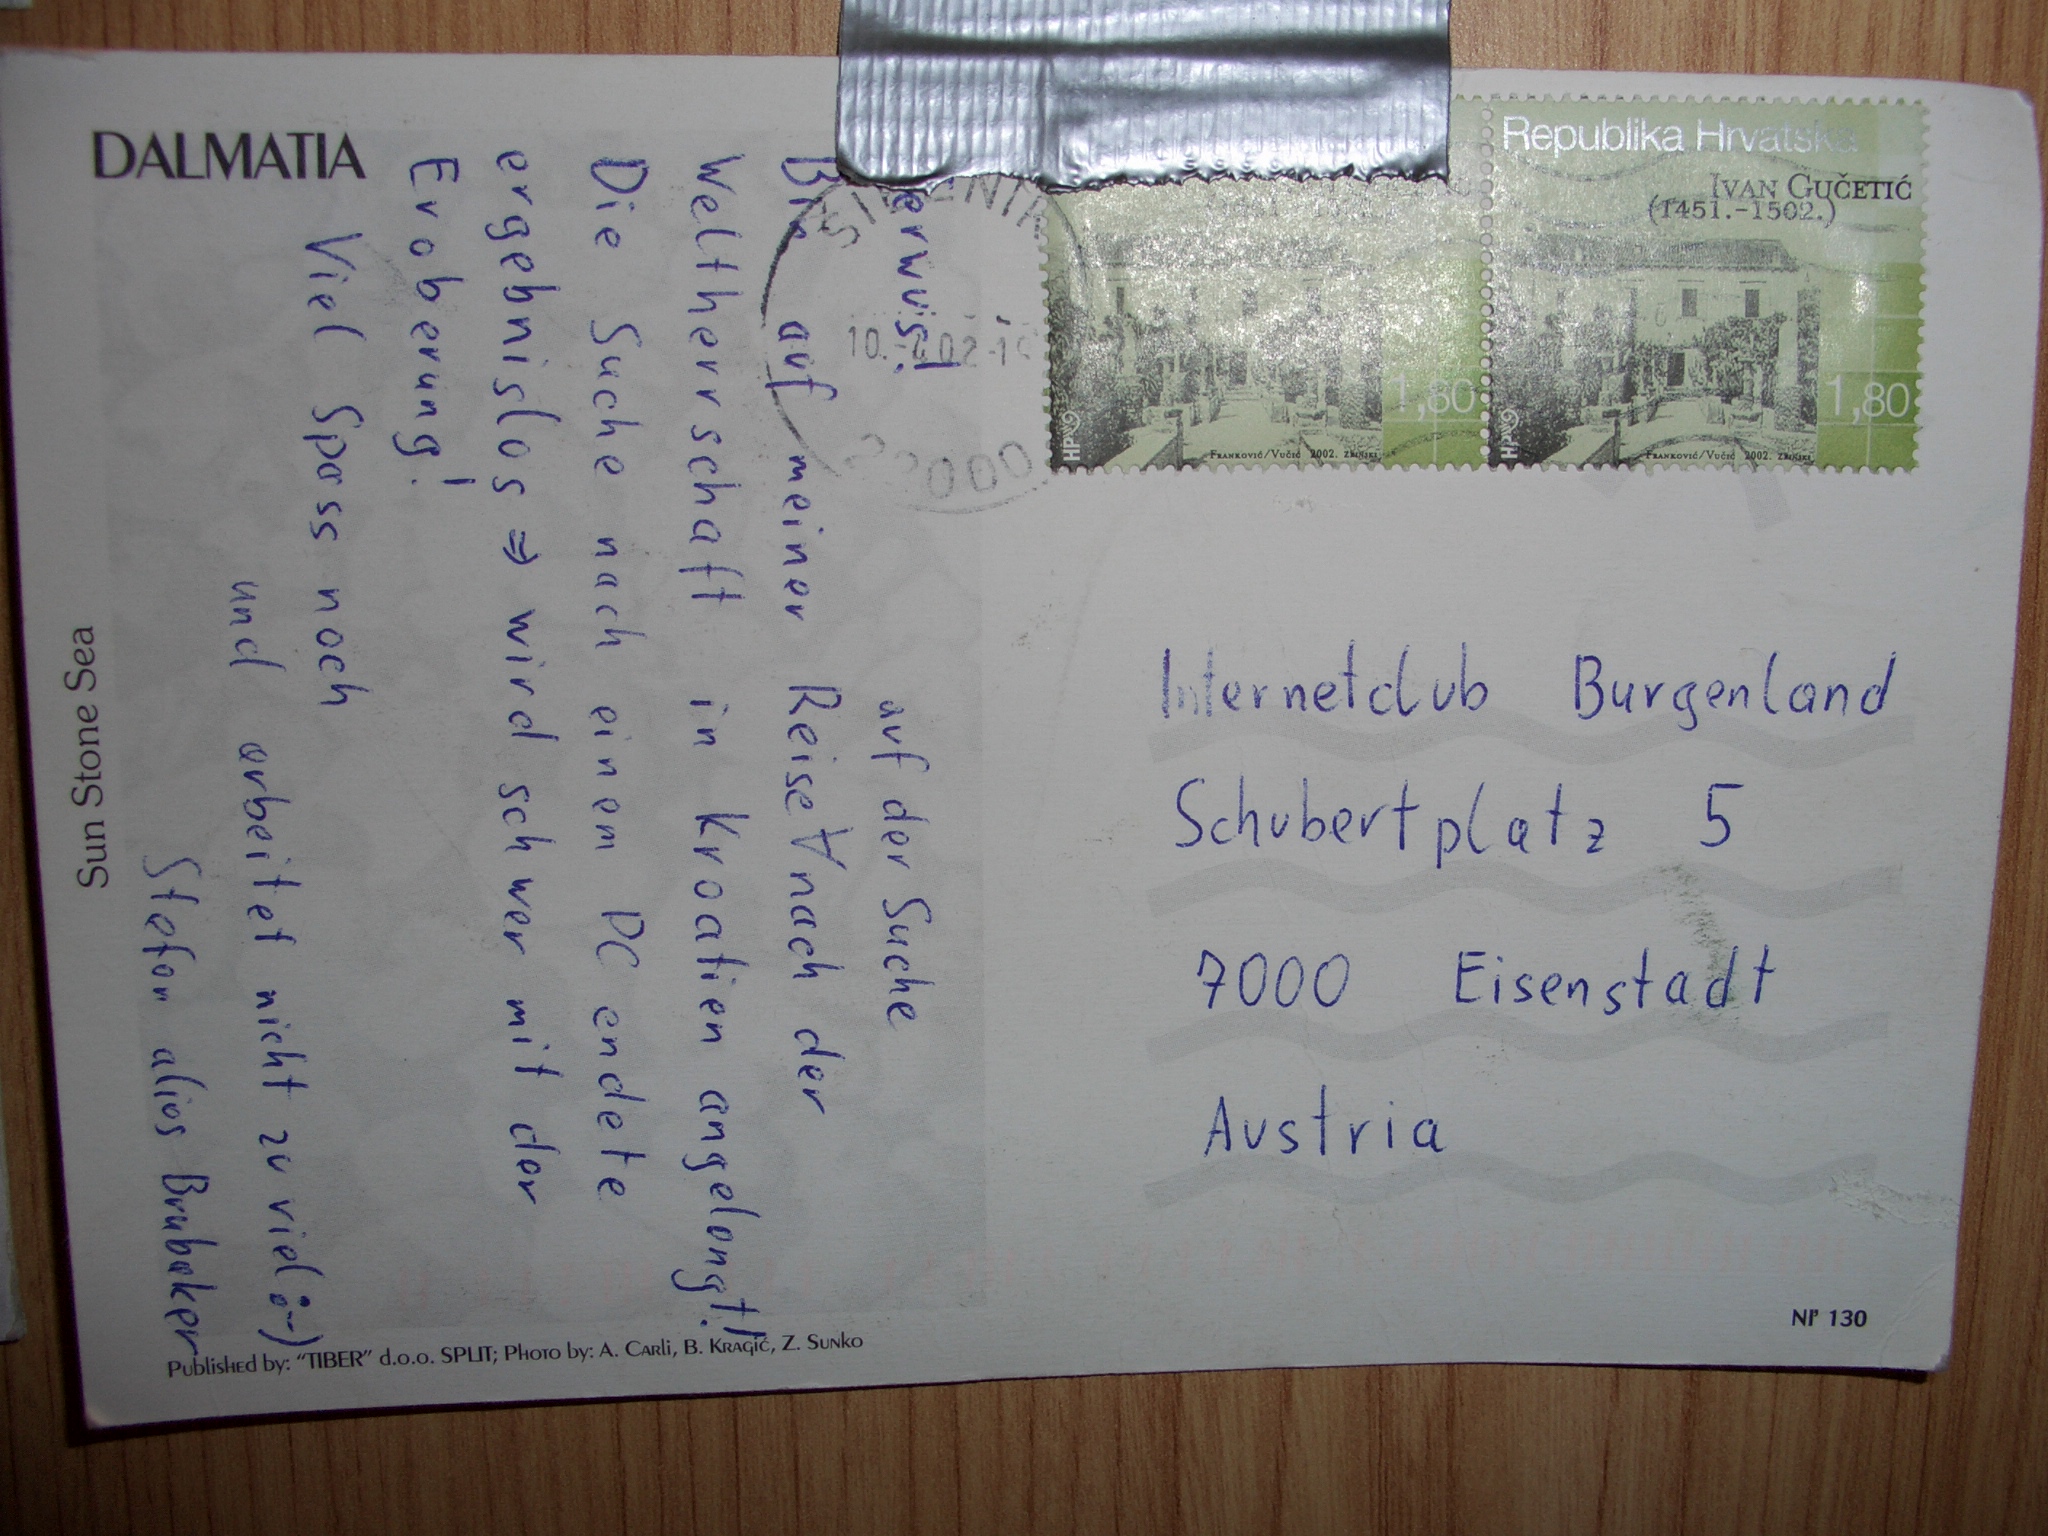 DALMATIA
Sun Stone Sea
erwus!
auf der Suche
Bin auf meiner Reise nach der
Weltherrschaft in Kroatien angelangt!
Die Suche nach einem PC endete
ergebnislos ⇒ wird schwer mit der
Eroberung!
Viel Spass noch
und arbeitet nicht zu viel ;-)
Stefan alias Brubaker
Published by: "TIBER" d.o.o. SPLIT; Photo by: A. Carli, B. Kragić, Z. Sunko
10. 02-1
000
1,80
HP
Franković/Vučić 2002. Zrinski
Republika Hrvatska
Ivan Gučetić
(1451.-1502.)
1,80
HP
Franković/Vučić 2002. Zrinski
Internetclub Burgenland
Schubertplatz 5
7000 Eisenstadt
Austria
NP 130